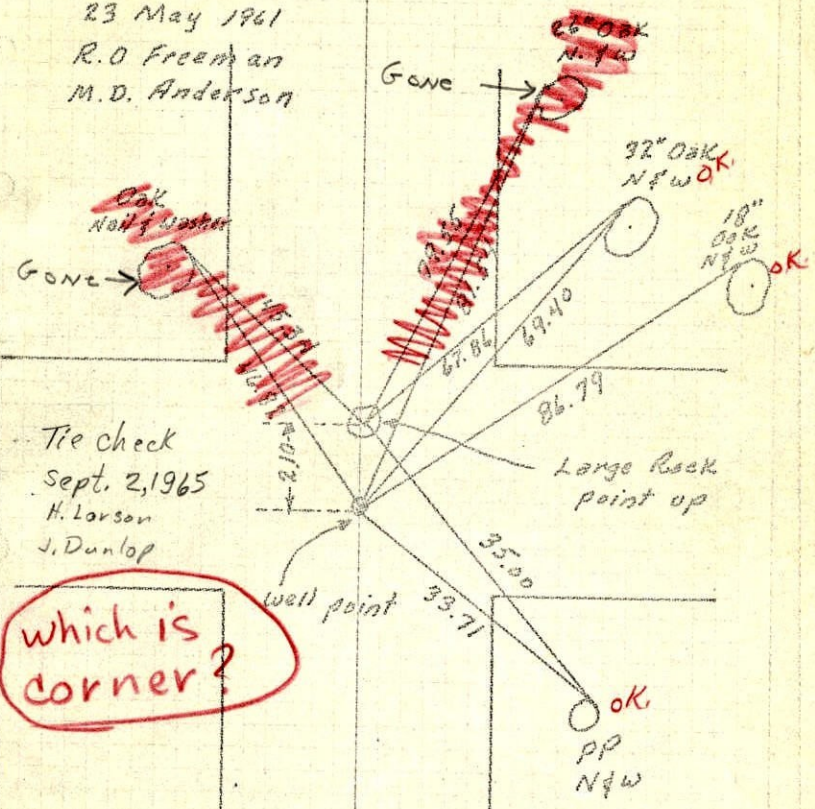 23 May 1961
R.O Freeman
M.D. Anderson
26" Oak
N. & W
GONE
32" Oak
N & W OK.
18"
Oak
N & W
OK.
Oak
Nail & Washer
GONE
67.86
69.40
86.79
2.10
Tie check
Sept. 2, 1965
H. Larson
J. Dunlop
Large Rock
point up
well point
35.00
33.71
which is
corner?
OK.
PP
N & W